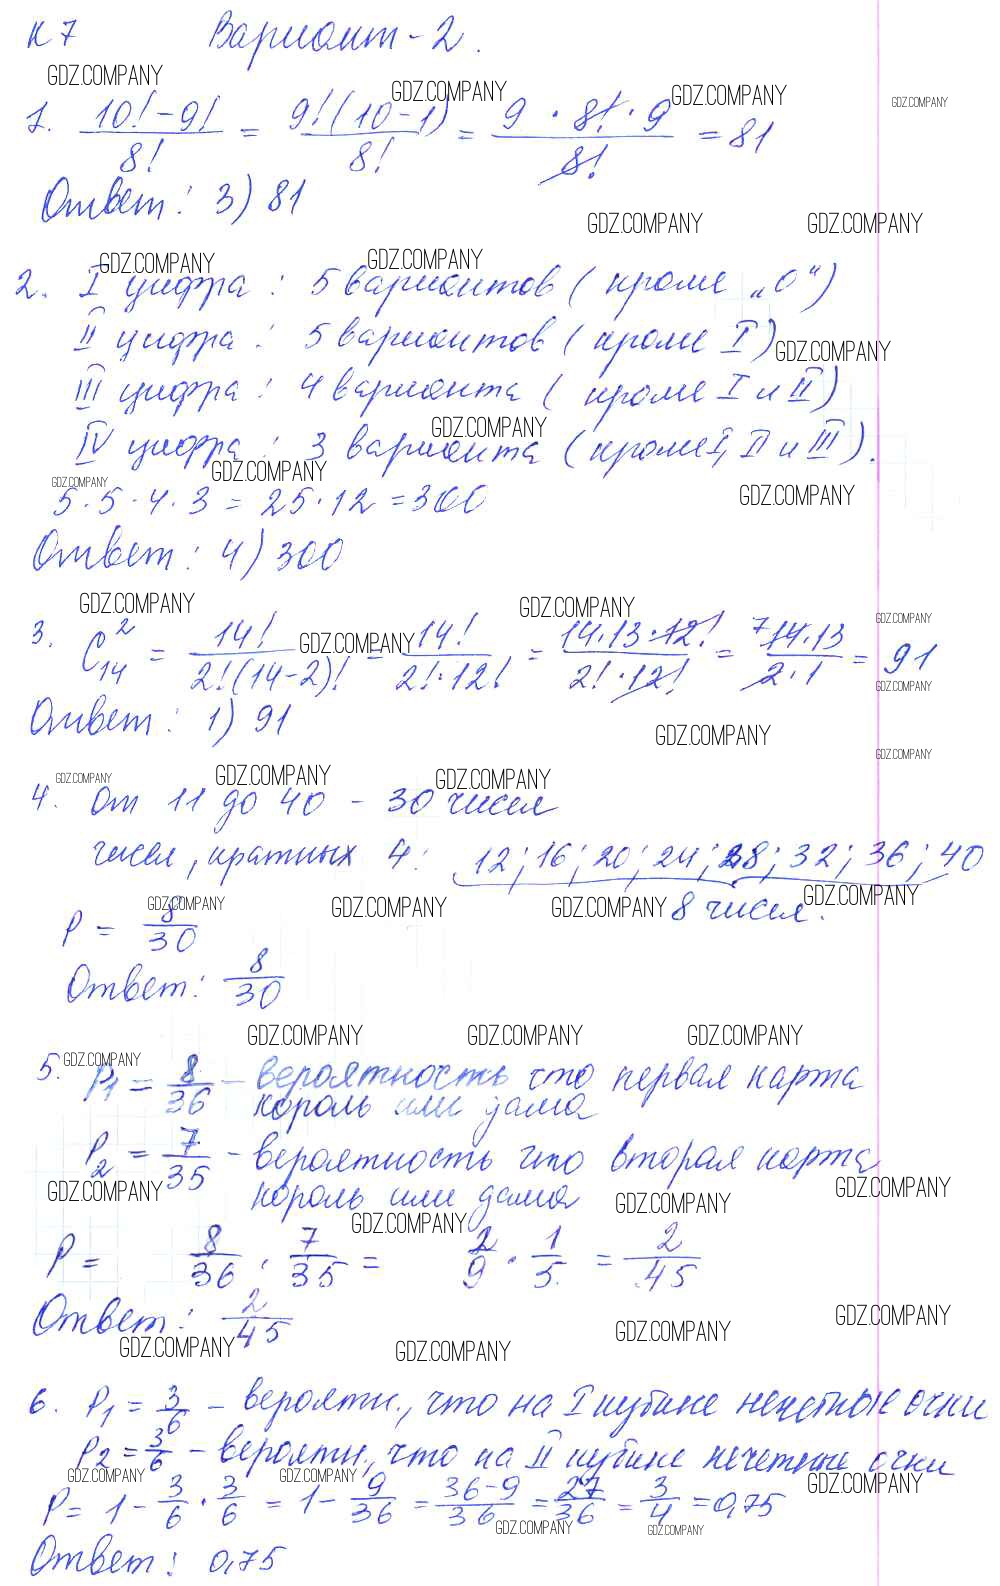 К 7 Вариант - 2.
GDZ.COMPANY
GDZ.COMPANY GDZ.COMPANY GDZ.COMPANY
1. (10! - 9!)/8! = 9!(10 - 1)/8! = (9 · 8! · 9)/8! = 81
Ответ: 3) 81
GDZ.COMPANY GDZ.COMPANY
GDZ.COMPANY GDZ.COMPANY
2. I цифра: 5 вариантов (кроме „0“)
II цифра: 5 вариантов (кроме I)
GDZ.COMPANY
III цифра: 4 варианта (кроме I и II)
GDZ.COMPANY
IV цифра: 3 варианта (кроме I, II и III).
GDZ.COMPANY GDZ.COMPANY GDZ.COMPANY
5 · 5 · 4 · 3 = 25 · 12 = 300
Ответ: 4) 300
GDZ.COMPANY GDZ.COMPANY GDZ.COMPANY
GDZ.COMPANY
3. C₁₄² = 14!/(2!(14-2)!) = 14!/(2!·12!) = (14·13·12!)/(2!·12!) = 7 (14·13)/(2·1) = 91
GDZ.COMPANY
Ответ: 1) 91
GDZ.COMPANY
GDZ.COMPANY
GDZ.COMPANY GDZ.COMPANY GDZ.COMPANY
4. От 11 до 40 - 30 чисел
чисел, кратных 4: 12; 16; 20; 24; 28; 32; 36; 40
GDZ.COMPANY GDZ.COMPANY GDZ.COMPANY GDZ.COMPANY
8 чисел.
P = 8/30
Ответ: 8/30
GDZ.COMPANY GDZ.COMPANY GDZ.COMPANY
GDZ.COMPANY
5. P₁ = 8/36 - вероятность что первая карта
король или дама
P₂ = 7/35 - вероятность что вторая карта
король или дама
GDZ.COMPANY GDZ.COMPANY GDZ.COMPANY
GDZ.COMPANY
P = 8/36 · 7/35 = 2/9 · 1/5 = 2/45
Ответ: 2/45
GDZ.COMPANY GDZ.COMPANY GDZ.COMPANY GDZ.COMPANY
6. P₁ = 3/6 - вероятн., что на I кубике нечетные очки
P₂ = 3/6 - вероятн., что на II кубике нечетные очки
GDZ.COMPANY GDZ.COMPANY GDZ.COMPANY
P = 1 - 3/6 · 3/6 = 1 - 9/36 = (36-9)/36 = 27/36 = 3/4 = 0,75
GDZ.COMPANY GDZ.COMPANY
Ответ: 0,75